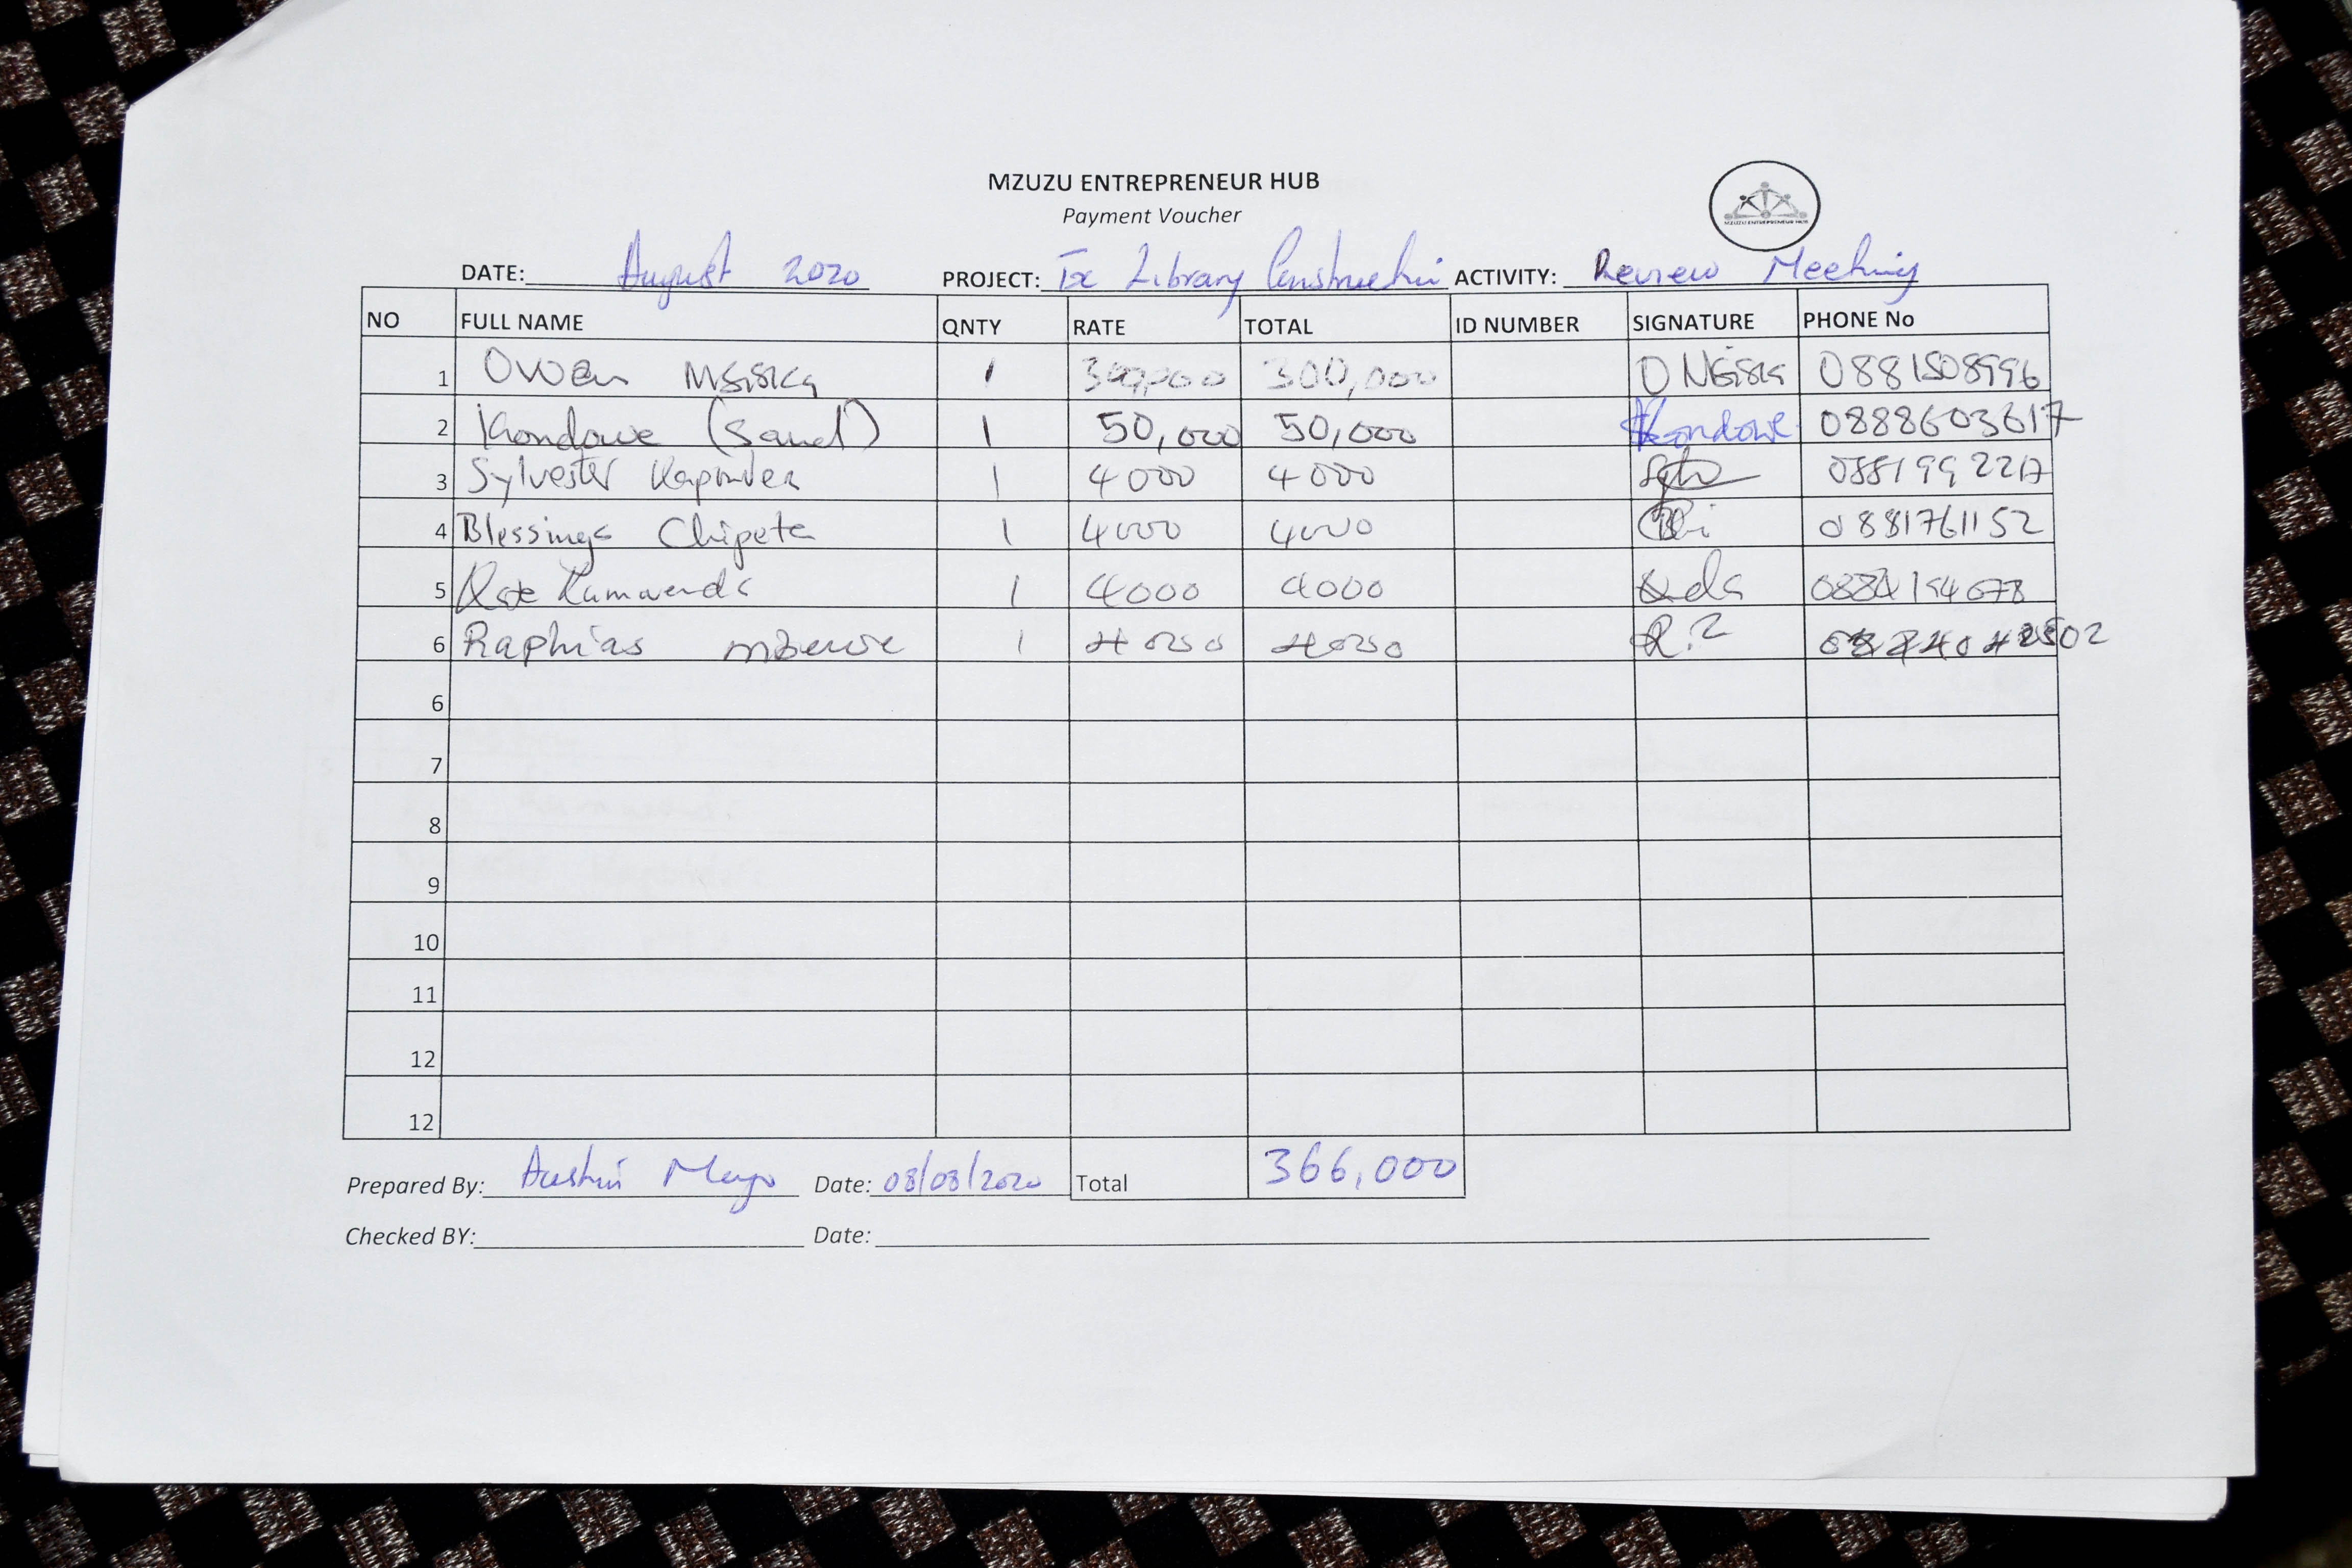 MZUZU ENTREPRENEUR HUB
Payment Voucher
MZUZU ENTREPRENEUR HUB
DATE: August 2020 PROJECT: Library Construction ACTIVITY: Review Meeting
NO FULL NAME QNTY RATE TOTAL ID NUMBER SIGNATURE PHONE No
1 Owen Msiska 1 300,000 300,000 O Msiska 0881508996
2 Kondowe (Sand) 1 50,000 50,000 Kondowe 0888603617
3 Sylvester 1 4000 4000
4 Blessings Chipeta 1 4000 4000 0881761152
5 Kamwenda 1 4000 4000
6 Raphias 1 4000 4000
6
7
8
9
10
11
12
12
Prepared By: Austin Date: 08/08/2020 Total 366,000
Checked BY: Date: